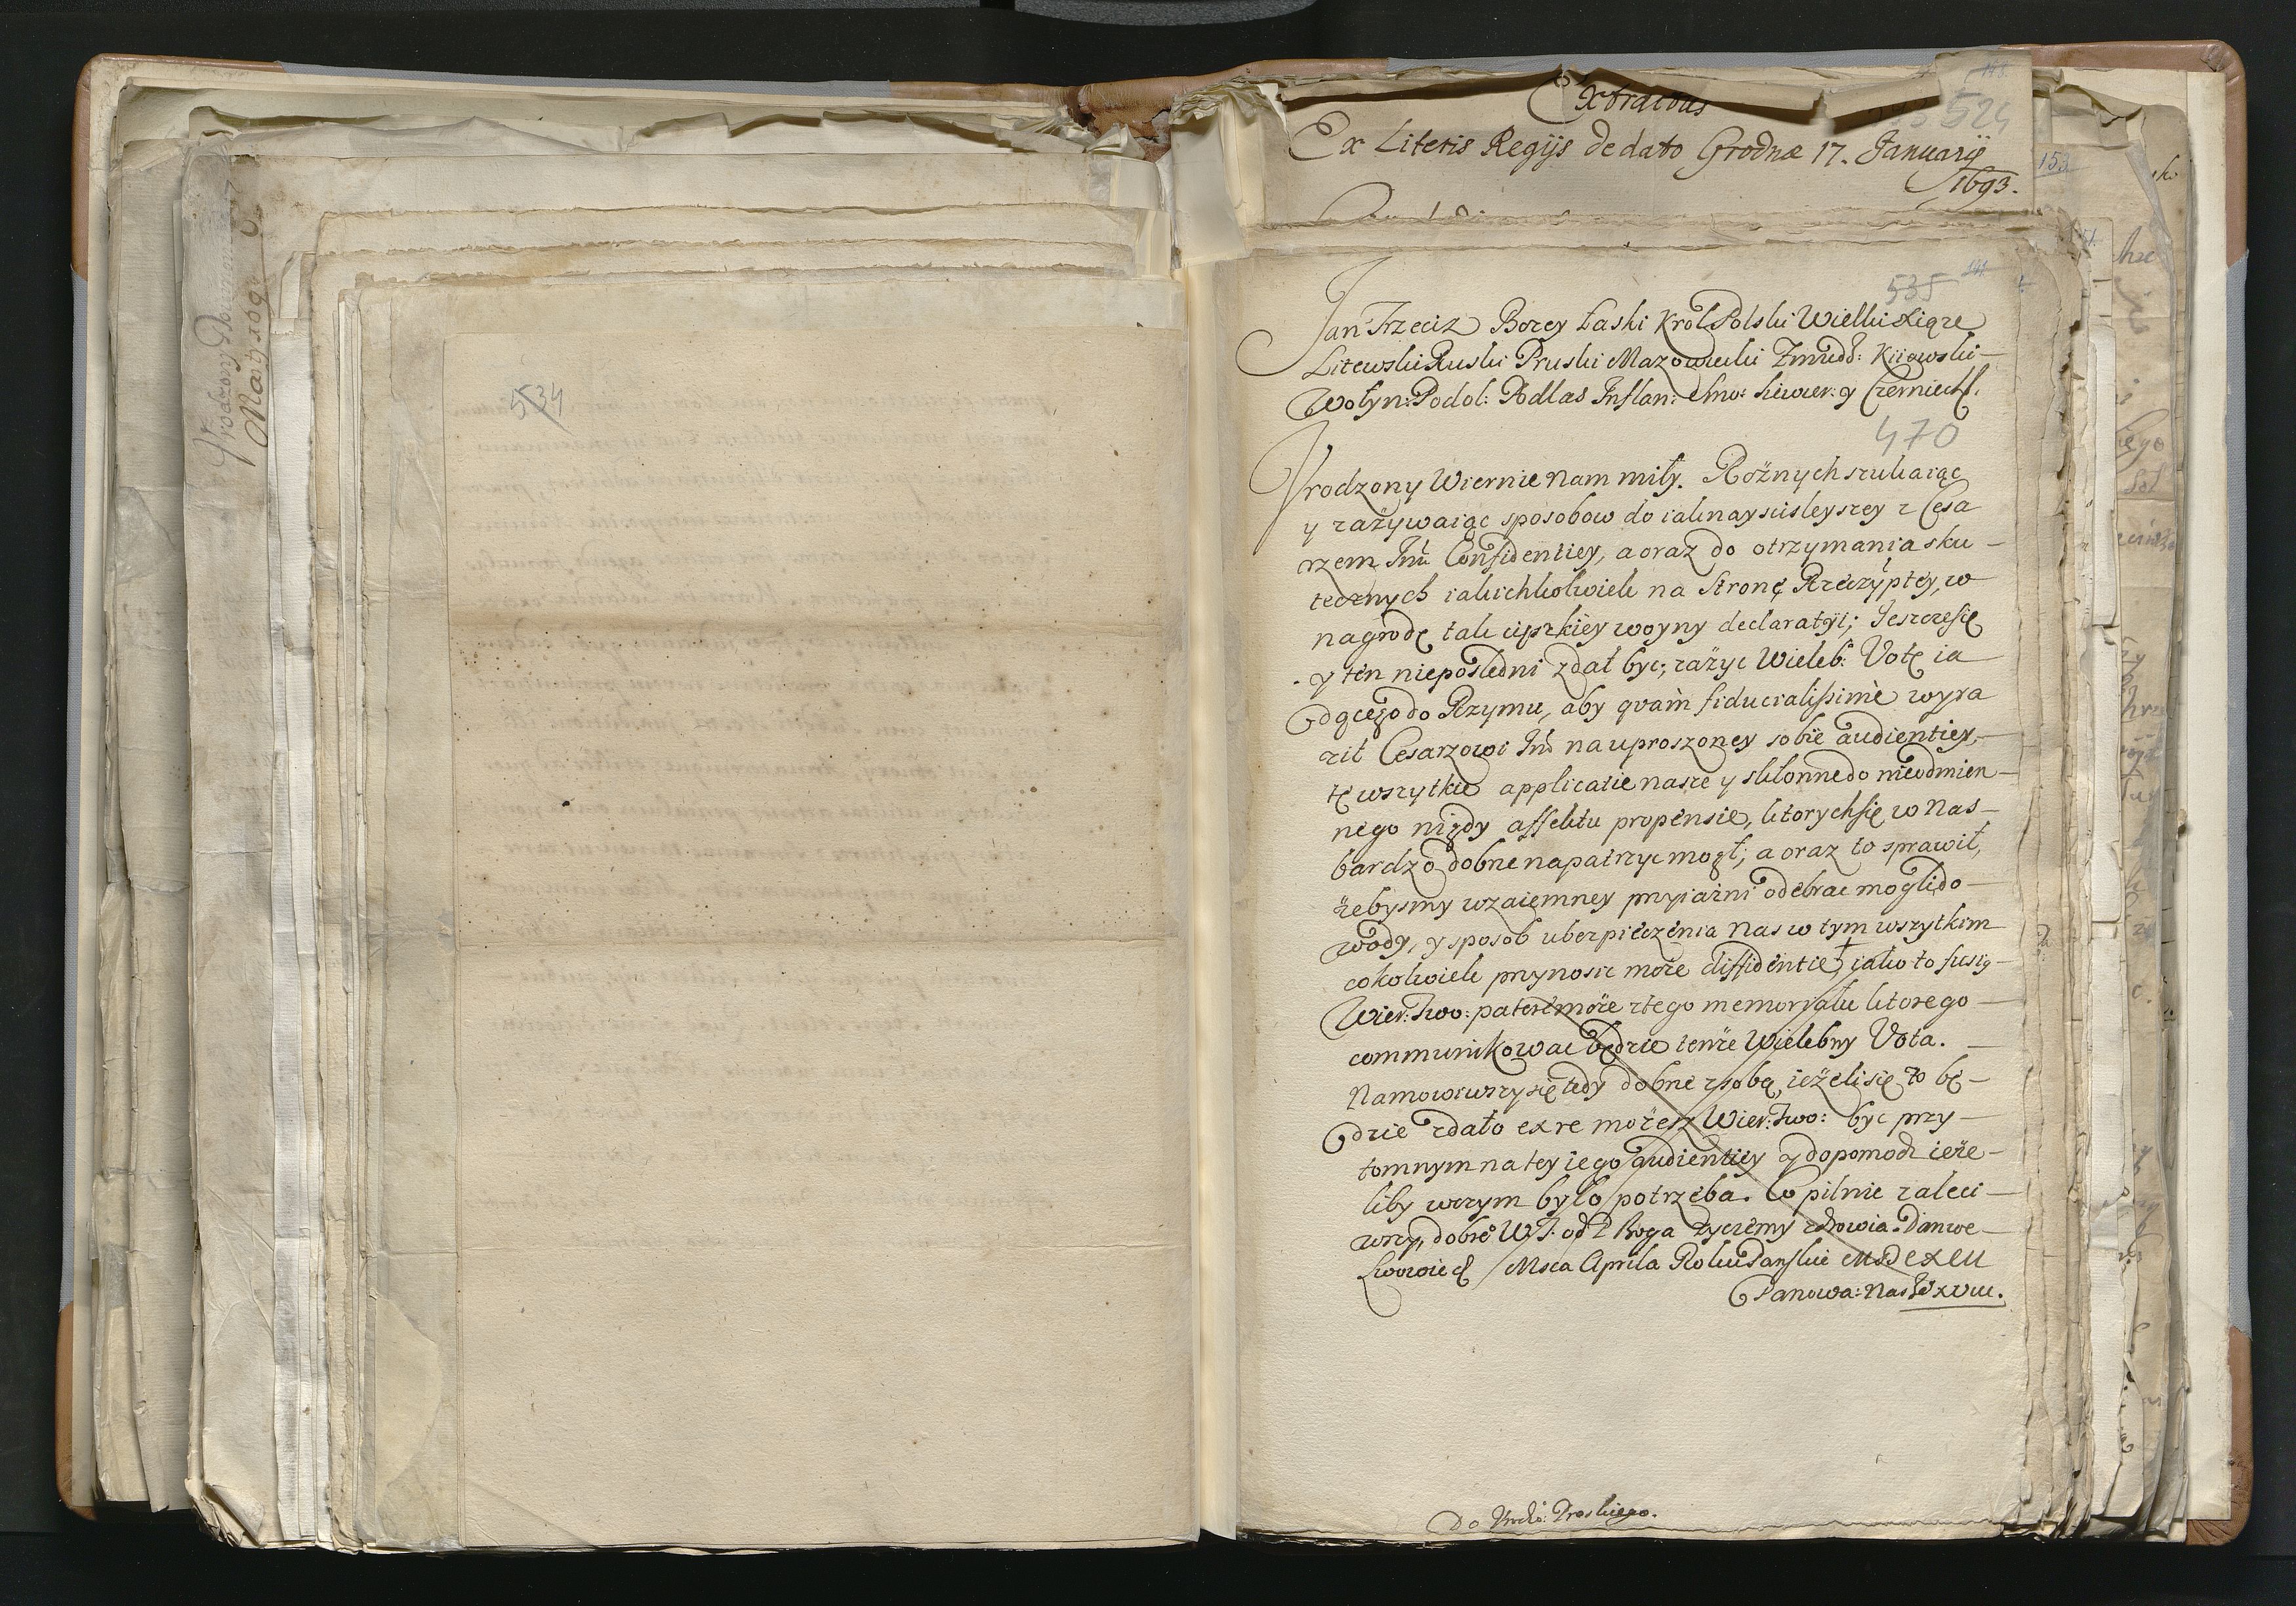 Urodzony
Martij 169
534
Extractus
524
Ex Literis Regijs de dato Grodnæ 17. Januarij
1693.
153.
535
Jan Trzeciz Bozey Łaski Krol Polski Wielki Xiąze
Litewski Ruski Pruski Mazowiecki Zmudz: Kiiowski
Wołyn: Podol: Podlas Inflan: Smo: Siewier: y Czerniech.
470
Vrodzony Wiernie Nam miły. Rożnych szukaiąc
y zażywaiąc sposobow do iaknayscisleyszey z Cesa
rzem Jm Confidentiey, a oraz do otrzymania sku-
tecznych iakichkolwiek na Stronę Rzeczyptey, w
nagrodę tak cięszkiey woyny declaratyi; Jeszcze się
y ten nieposledni zdał byc; zażyc Wieleb: Votę ia
dącego do Rzymu, aby quàm fiducialissimè wyra
ził Cesarzowi Jm na uproszoney sobie audientiey,
tę wszytkie applicatie nasze y sklonne do nieodmien-
nego nigdy affektu propensie, ktorych się w Nas
bardzo dobrze napatrzyc mogł; a oraz to sprawił,
żebysmy wzaiemney przyiaźni odebrac mogli do-
wody, y sposob ubezpieczenia Nas w tym wszytkim
cokolwiek przynosic może diffidentie, iako to fusię
Wier: Two: patere może z tego memoryału ktorego
communikowac będzie tenże Wielebny Vota.
Namowiwszy się tedy dobrze z sobą, ieżeli się to bę-
dzie zdało ex re możesz Wier: Two: byc przy-
tomnym na tey iego audientiey y dopomodz ieże-
liby w czym było potrzeba. Co pilnie zaleci-
wszy, dobre W. T. od P Boga życzemy zdrowia. Dan we
Lwowie d Msca Aprila Roku Panskie MDCXCII
Panowa: Nas: XVIII.
Do Vrodzo: Proskiego.